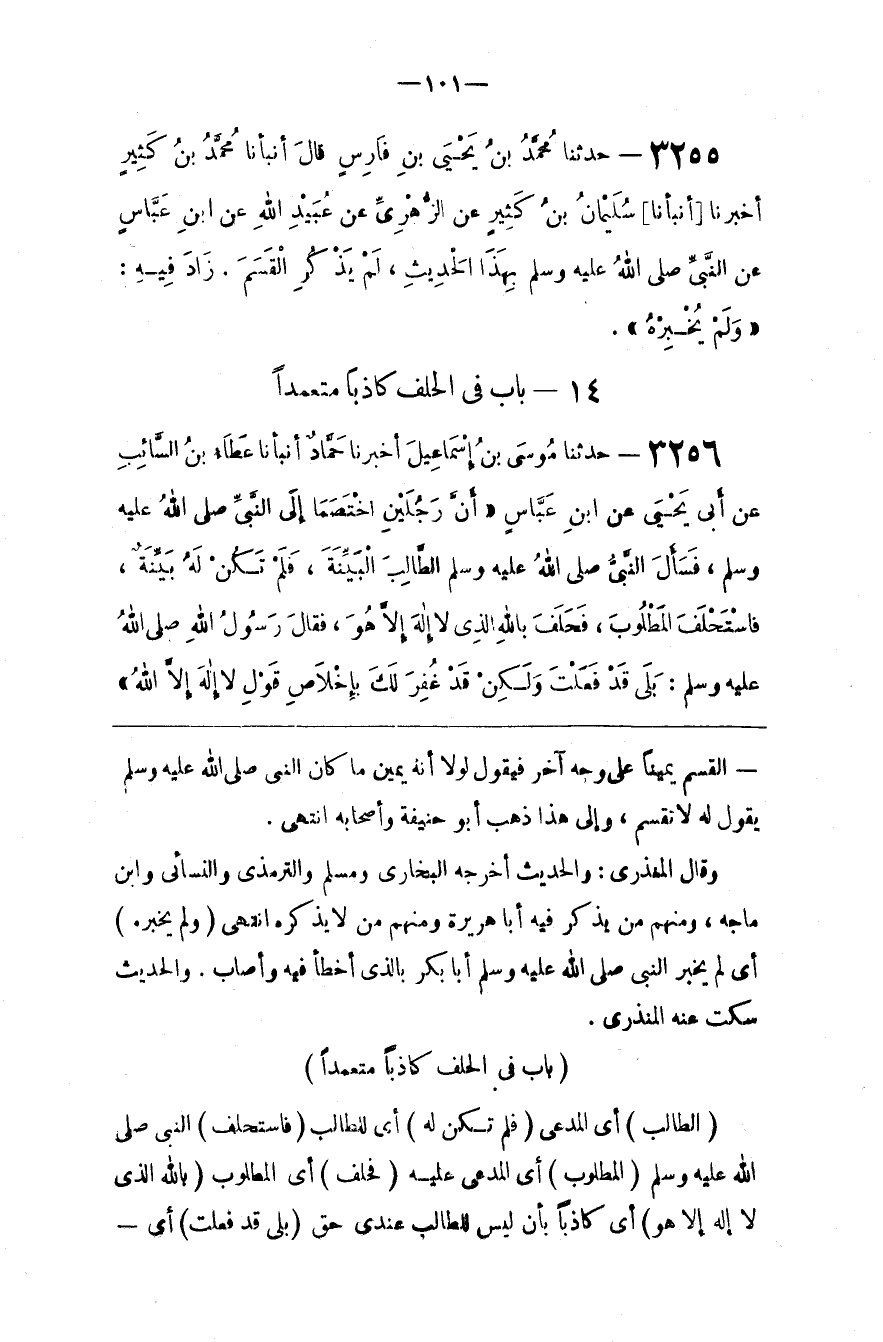 —١٠١—
٣٢٥٥ — حدثنا مُحمَّدُ بنُ يَحْيَى بنِ فَارِسٍ قالَ أنبأنا مُحمَّدُ بنُ كَثِيرٍ
أخبرنا [أنبأنا] سُلَيْمانُ بنُ كَثِيرٍ عن الزُّهْرِىِّ عن عُبَيْدِ اللهِ عن ابنِ عَبَّاسٍ
عن النَّبىِّ صلى اللهُ عليه وسلم بِهَذَا الْحَدِيثِ ، لَمْ يَذْكُرِ الْقَسَمَ . زَادَ فِيهِ :
« وَلَمْ يُخْبِرْهُ » .
١٤ — باب فى الحلف كاذباً متعمداً
٣٢٥٦ — حدثنا مُوسَى بنُ إسْمَاعِيلَ أخبرنا حَمَّادٌ أنبأنا عَطَاءُ بنُ السَّائِبِ
عن أَبى يَحْيَى عن ابنِ عَبَّاسٍ « أَنَّ رَجُلَيْنِ اخْتَصَمَا إلَى النَّبىِّ صلى اللهُ عليه
وسلم ، فَسَأَلَ النَّبىُّ صلى اللهُ عليه وسلم الطَّالِبَ الْبَيِّنَةَ ، فَلَمْ تَكُنْ لَهُ بَيِّنَةٌ ،
فاسْتَحْلَفَ المَطْلُوبَ ، فَحَلَفَ باللهِ الذى لا إلٰهَ إلاَّ هُوَ ، فقالَ رَسُولُ اللهِ صلى اللهُ
عليه وسلم : بَلَى قَدْ فَعَلْتَ وَلَكِنْ قَدْ غُفِرَ لَكَ بإخْلَاصِ قَوْلِ لا إلٰهَ إلاَّ اللهُ »
— القسم يميناً على وجه آخر فيقول لولا أنه يمين ما كان النبى صلى الله عليه وسلم
يقول له لا تقسم ، وإلى هذا ذهب أبو حنيفة وأصحابه انتهى .
وقال المنذرى : والحديث أخرجه البخارى ومسلم والترمذى والنسائى وابن
ماجه ، ومنهم من يذكر فيه أبا هريرة ومنهم من لا يذكره انتهى ( ولم يخبره )
أى لم يخبر النبى صلى الله عليه وسلم أبا بكر بالذى أخطأ فيه وأصاب . والحديث
سكت عنه المنذرى .
( باب فى الحلف كاذباً متعمداً )
( الطالب ) أى المدعى ( فلم تكن له ) أى للطالب ( فاستحلف ) النبى صلى
الله عليه وسلم ( المطلوب ) أى المدعى عليه ( فحلف ) أى المطلوب ( بالله الذى
لا إله إلا هو ) أى كاذباً بأن ليس للطالب عندى حق ( بلى قد فعلت ) أى —